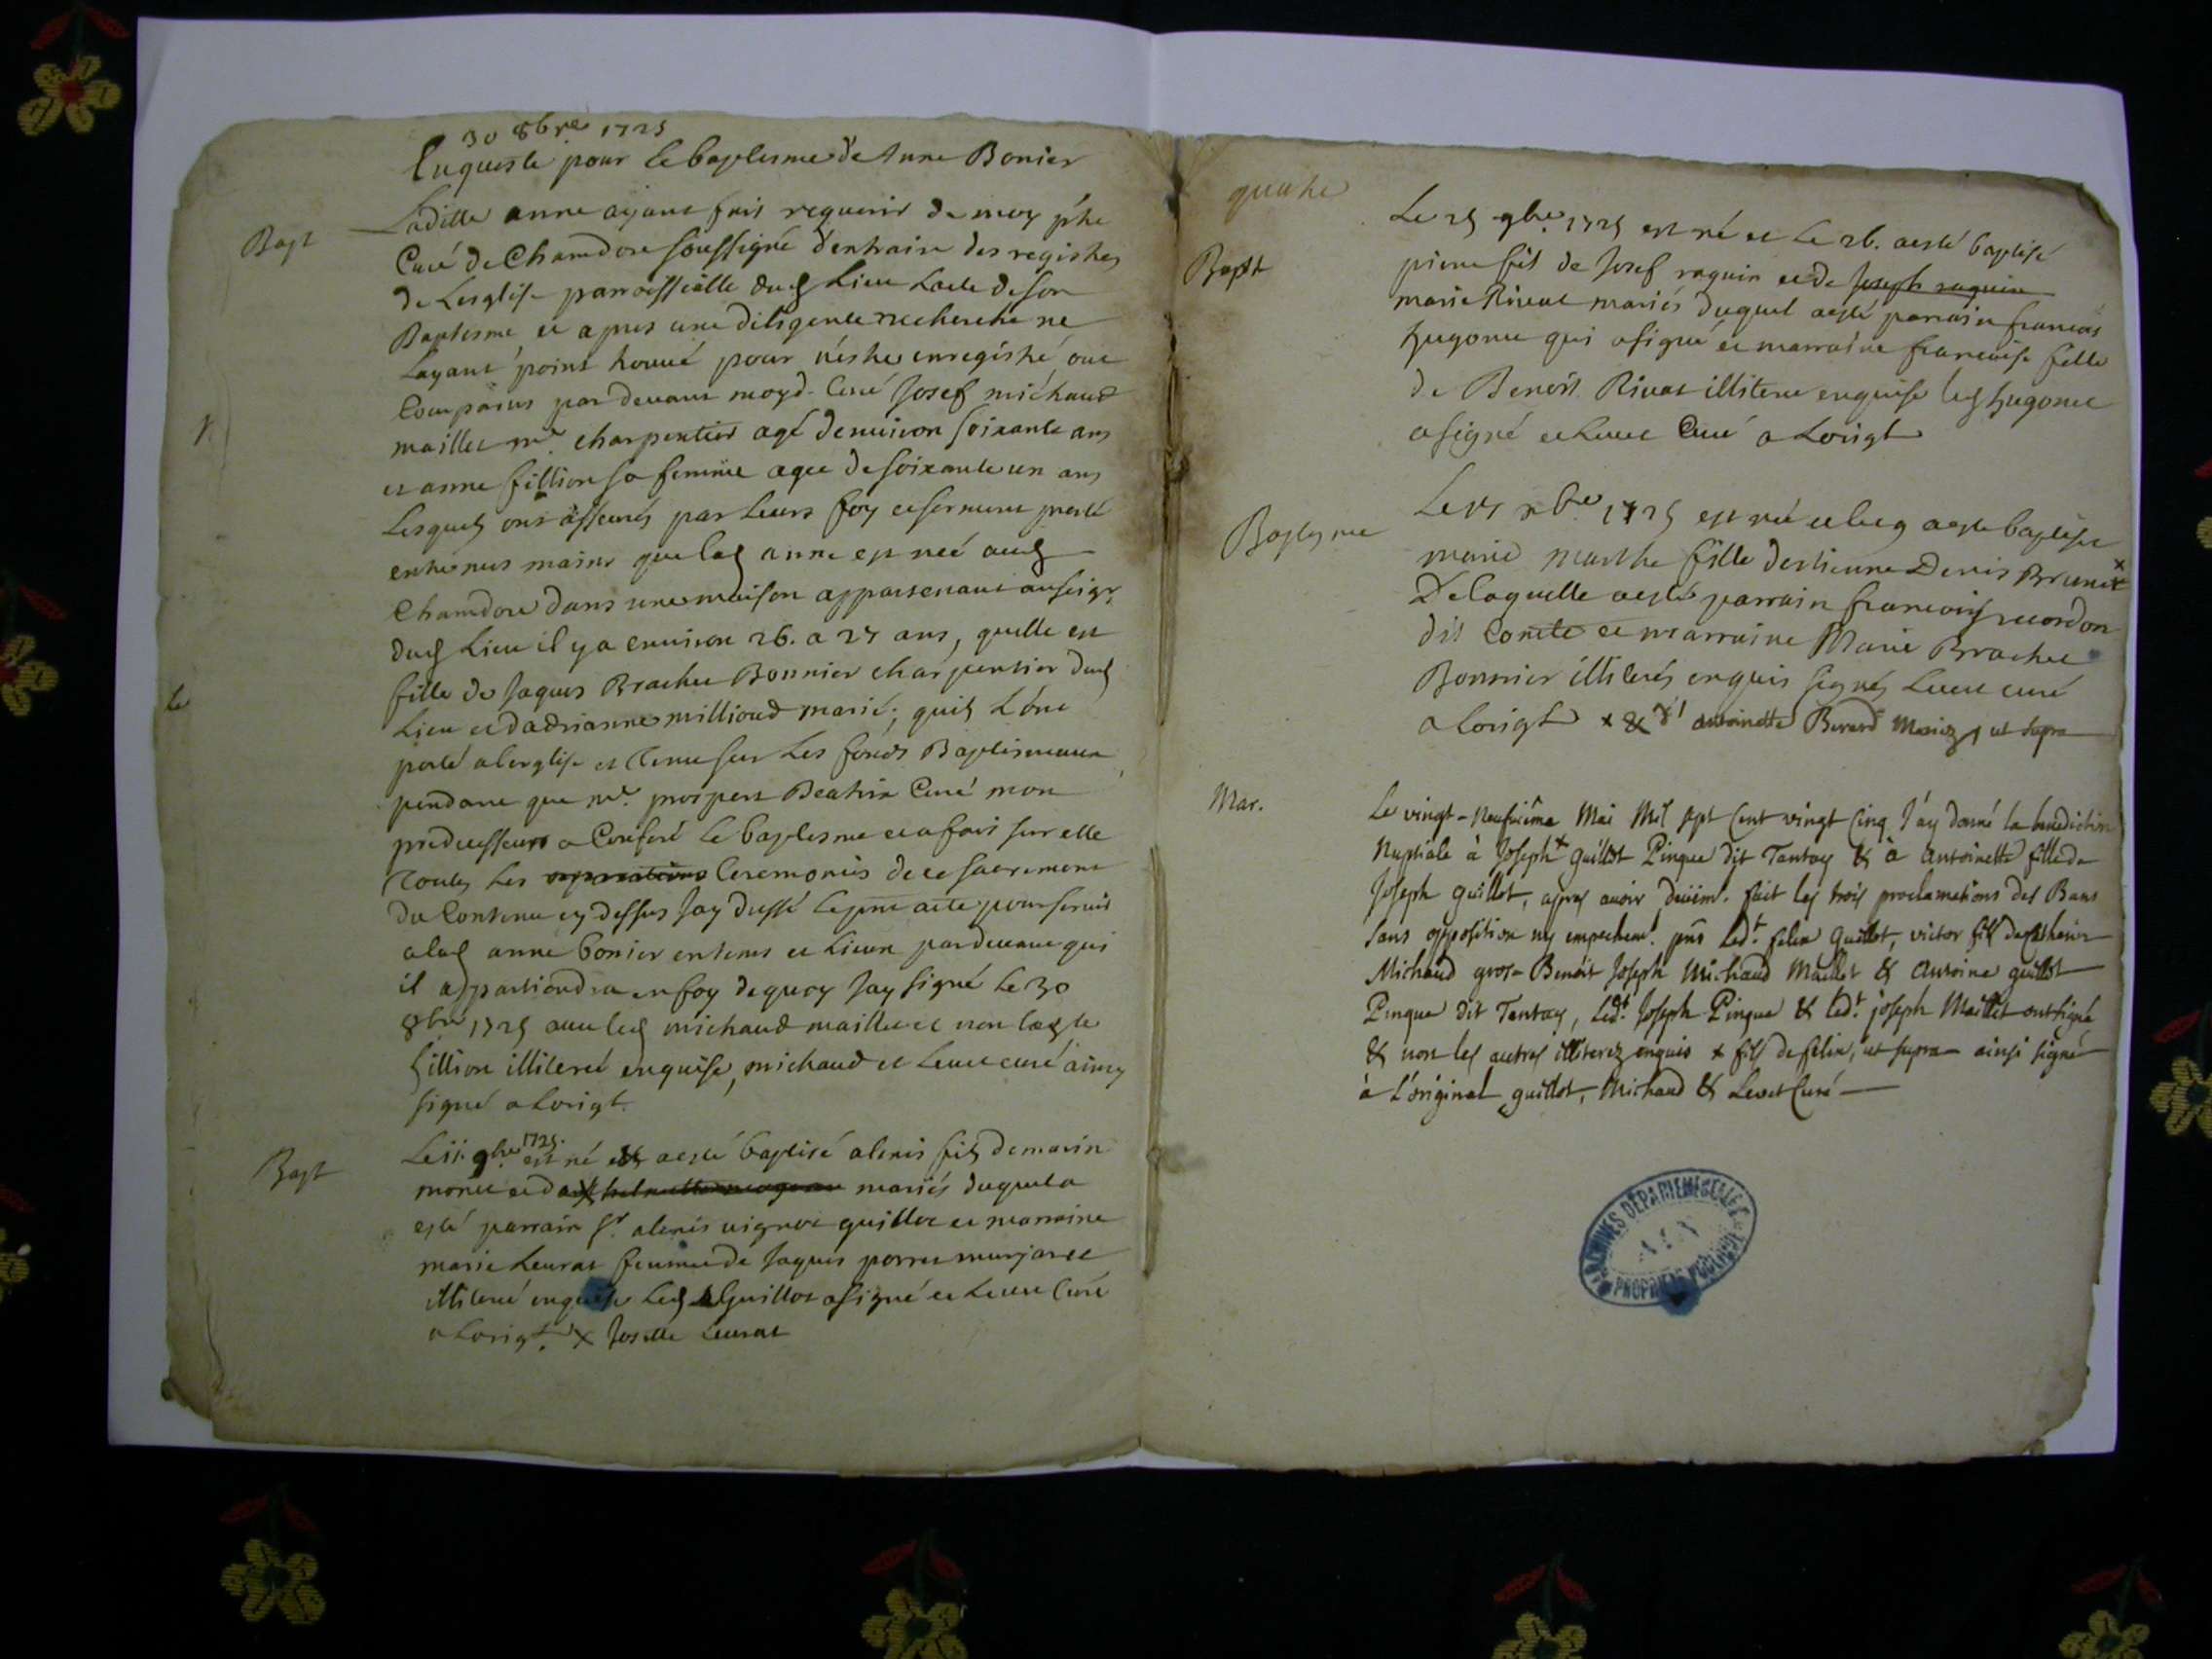 30 8bre 1725
Enqueste pour le baptesme de Anne Bonier
Bapt
Laditte anne ayant fait requerir de moy ptre
Curé de Chamdore soussigné dextraire des registres
de Lesglise parroissialle dud Lieu Lacte de son
Baptesme et apres une diligente recherche ne
Layant point trouvé pour n'estre enregistré ont
Comparus par devant moyd. Curé Josef michaud
maillet me. charpentier agé denviron soixante ans
et anne fillion sa femme agee de soixante un ans
Lesquels ont asseurés par Leurs foy et serment presté
entre mes mains que lad anne est neé aud
Chamdore dans une maison appartenant au seigr.
dud Lieu il y a environ 26. a 27 ans, quelle est
fille de Jaques Brachet Bonnier charpentier dud
Lieu et dadrianne milliond marié; quils L'ont
porté a lesglise et tenu sur Les fonds Baptismaux
pendant que mre. prospert Beatrix Curé mon
predecesseur a Conferé Le baptesme et a fait sur elle
toutes Les Ceremonies de ce sacrement
du Contenu cy dessus Jay dressé Le pnt acte pour servir
a lad anne bonier en tems et Lieux par devant qui
il appartiendra en foy de quoy Jay signé Le 30
8bre 1725 avec led michaud maillet et non lad
fillion illiteré enquise, michaud et Levet curé ainsy
signé a Lorigl.
Bapt
Le 11. 9bre 1725. est né et a esté baptisé alexis fils de marin
monet et da X mariés duquel a
esté parrain Sr. alexis vignod guillot et marraine
marie Leurat femme de Jaques porret murjaret
illiteré enquise Led Guillot a signé et Levet Curé
a Lorigl. X Josette Leurat
quatre
Bapt
Le 25 9bre. 1725 est né et Le 26. a esté baptisé
pierre fils de Josef raguin et de Joseph raguin
marie Rivat mariés duquel a esté parrain francois
hugonet qui a signé et marraine francoise fille
de Benoit Rivat illiteree enquise led hugonet
a signé et Levet Curé a Lorigl
Baptesme
Le 17 xbre 1725 est née et a esté baptisé
marie marthe fille destienne Denis Brunet x
De laquelle a esté parrain francois reordon
dit Comte et marraine Marie Brachet
Bonnier illiterés enquis signés Levet curé
a Lorigl x & d' antoinette Berard Mariez, ut supra
Mar.
Le vingt-neufvieme Mai Mil sept Cent vingt Cinq J'ay donné la benediction
Nuptiale à Joseph x guillot Pingue dit Tantay & à antoinette fille de
Joseph guillot, apres avoir deüem. fait les trois proclamations des Bans
Sans opposition ny empechemt. pns Ledt. felix Guillot, victor fils
Michaud gros-Benoit Joseph Michaud Maillet & Antoine guillot
Pingue dit Tantay, Ledt. Joseph Pingue & ledt. joseph Maillet ont signé
& non les autres illiterez enquis x fils de felix, ut supra ainsi signé
à L'original guillot, Michaud & Levet Curé
ARCHIVES DÉPARTEMENTALES
AIN
PROPRIÉTÉ PUBLIQUE